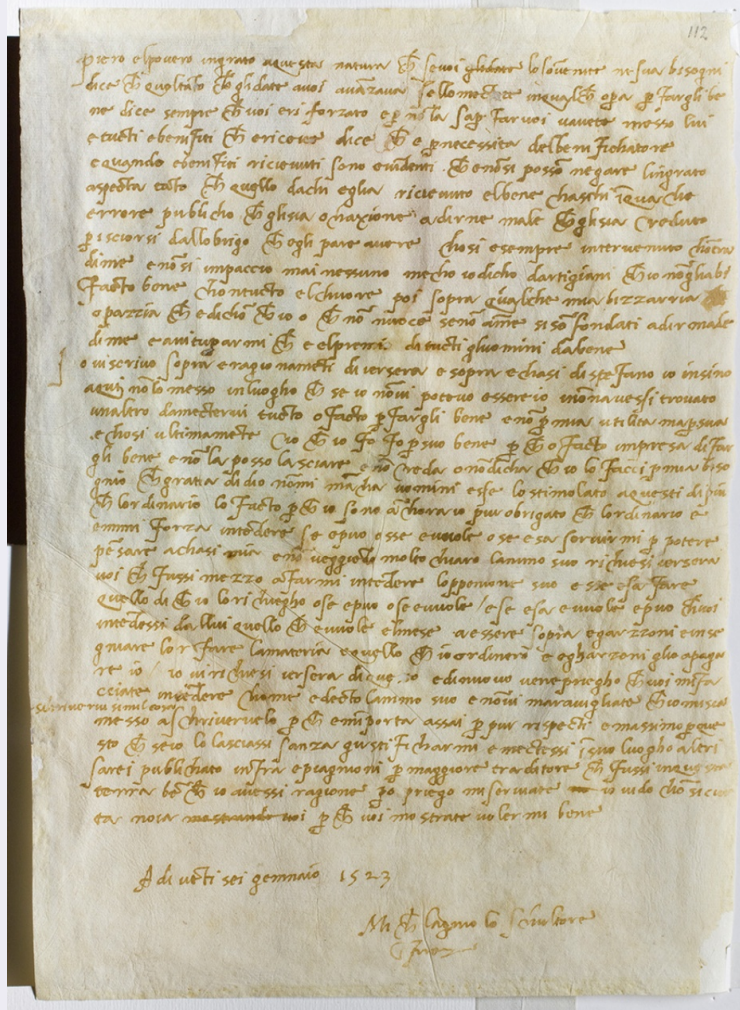 112
piero elpovero ingrato aquesta natura ch sevoi glidate losovenite nesua bisogni
dice ch queltãto ch glidate avoi avãzava sellomectete inqualch opa p fargli be
ne dice sempre ch voi eri forzato e p nõ la sap far voi vavete messo lui
e tucti ebenifiti ch ericieve dice ch e p necessita delbenifichatore
e quando ebenifiti ricievuti sono evidenti ch enõsi possõ negare lingrato
aspecta tãto ch quello dachi eglia ricievuto elbene chaschi ĩqualche
errore publicho ch glisia ochasione adirne male ch glisia creduto
p isciorsi dallobrigo ch egli pare avere chosi esempre intervenuto chõtra
dime e nõ si impaccio mai nessuno mecho io dicho dartigiani ch io nõgliabi
facto bene chontucto elchuore poi sopra qualche mia bizzarria
o pazzia ch edichõ ch io o ch nõ nuoce senõ ame sisõ fondati adir male
dime e avituparmi ch e elpremio di tucti gliuomini dabene
o viscrivo sopra eragionamẽti di iersera e sopra echasi distefano io insino
aqui nõlo messo inluogho ch se io nõvi potevo essere io innõnavessi trovato
unaltro damectervi tucto o facto p fargli bene e nõ p mia utilita ma p sua
e chosi ultimamẽte cio ch io fo fo p suo bene p ch o facto impresa di far
gli bene e nõ la posso lasciare e nõ creda o nõ dicha ch io lo facci p mia biso
gnio ch gratia di dio nõmi mãcha uomini e se lo stimolato aquesti di piu
ch lordinario lo facto p ch io sono ãchora io piu obrigato ch lordinario e
emmi forza intẽdere se epuo o se evuole o se esa servirmi p potere
pẽsare achasi mia e nõ veggiẽdo molto chiaro lanimo suo richiesi iersera
voi ch fussi mezzo afarmi intẽdere loppenione suo e se esa fare
quello di ch io lo richiegho o se epuo o se evuole / e se esa evuole epuo ch voi
intẽdessi dallui quello ch evuole elmese aessere sopra egarzoni e inse
gniare lor fare lamateria e quello ch io ordinero e egharzoni glio apaga
re io / io vi richiesi iersera di que io edinuovo veneprieghо ch voi mifa
cciate intẽdere chome e decto lanimo suo e nõvi maravigliate ch iomisia
scrivervi simil cosa
messo aschrivervelo p ch emiporta assai p piu rispecti e massimo p que
sto ch seio lo lasciassi sanza giustificharmi e mectessi ĩ suo luogho altri
sarei publichato infra epiagnioni p maggiore traditore ch fussi inquesta
terra bẽch io avessi ragione po priego miserviate io vi do chõ sicur
ta noia mostrando voi p ch voi mostrate volermi bene
A di vẽti sei gennaio 1523
Michelagniolo schultore
ĩ firẽze